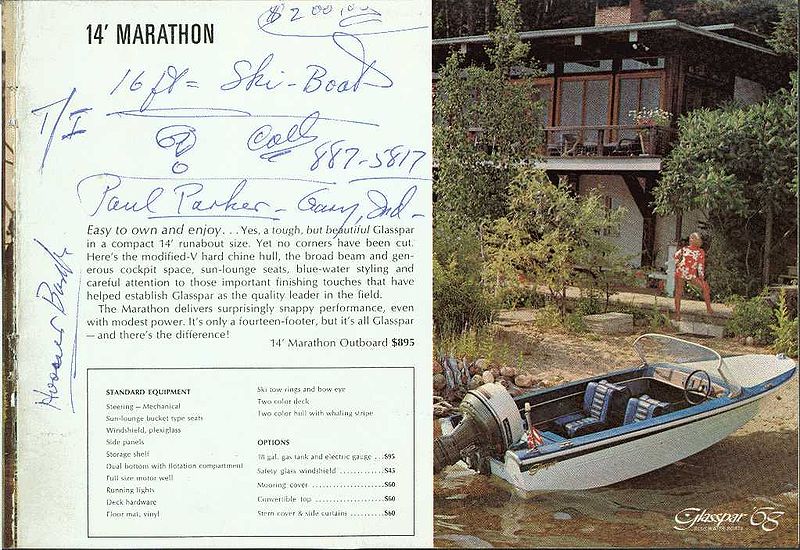 $200.00
14' MARATHON
16 ft = Ski-Boat
T/I
Call
887-5817
Paul Parker - Gary, Ind -
Easy to own and enjoy . . . Yes, a tough, but beautiful Glasspar
in a compact 14' runabout size. Yet no corners have been cut.
Here's the modified-V hard chine hull, the broad beam and gen-
erous cockpit space, sun-lounge seats, blue-water styling and
careful attention to those important finishing touches that have
helped establish Glasspar as the quality leader in the field.
The Marathon delivers surprisingly snappy performance, even
with modest power. It's only a fourteen-footer, but it's all Glasspar
— and there's the difference!
14' Marathon Outboard $895
STANDARD EQUIPMENT
Steering — Mechanical
Sun-lounge bucket type seats
Windshield, plexiglass
Side panels
Storage shelf
Dual bottom with flotation compartment
Full size motor well
Running lights
Deck hardware
Floor mat, vinyl
Ski tow rings and bow eye
Two color deck
Two color hull with whaling stripe
OPTIONS
18 gal. gas tank and electric gauge . . . $95
Safety glass windshield . . . . . . . . . . . . $45
Mooring cover . . . . . . . . . . . . . . . . . . . $60
Convertible top . . . . . . . . . . . . . . . . . . $60
Stern cover & side curtains . . . . . . . . . . $60
Glasspar 68
BLUE WATER BOATS